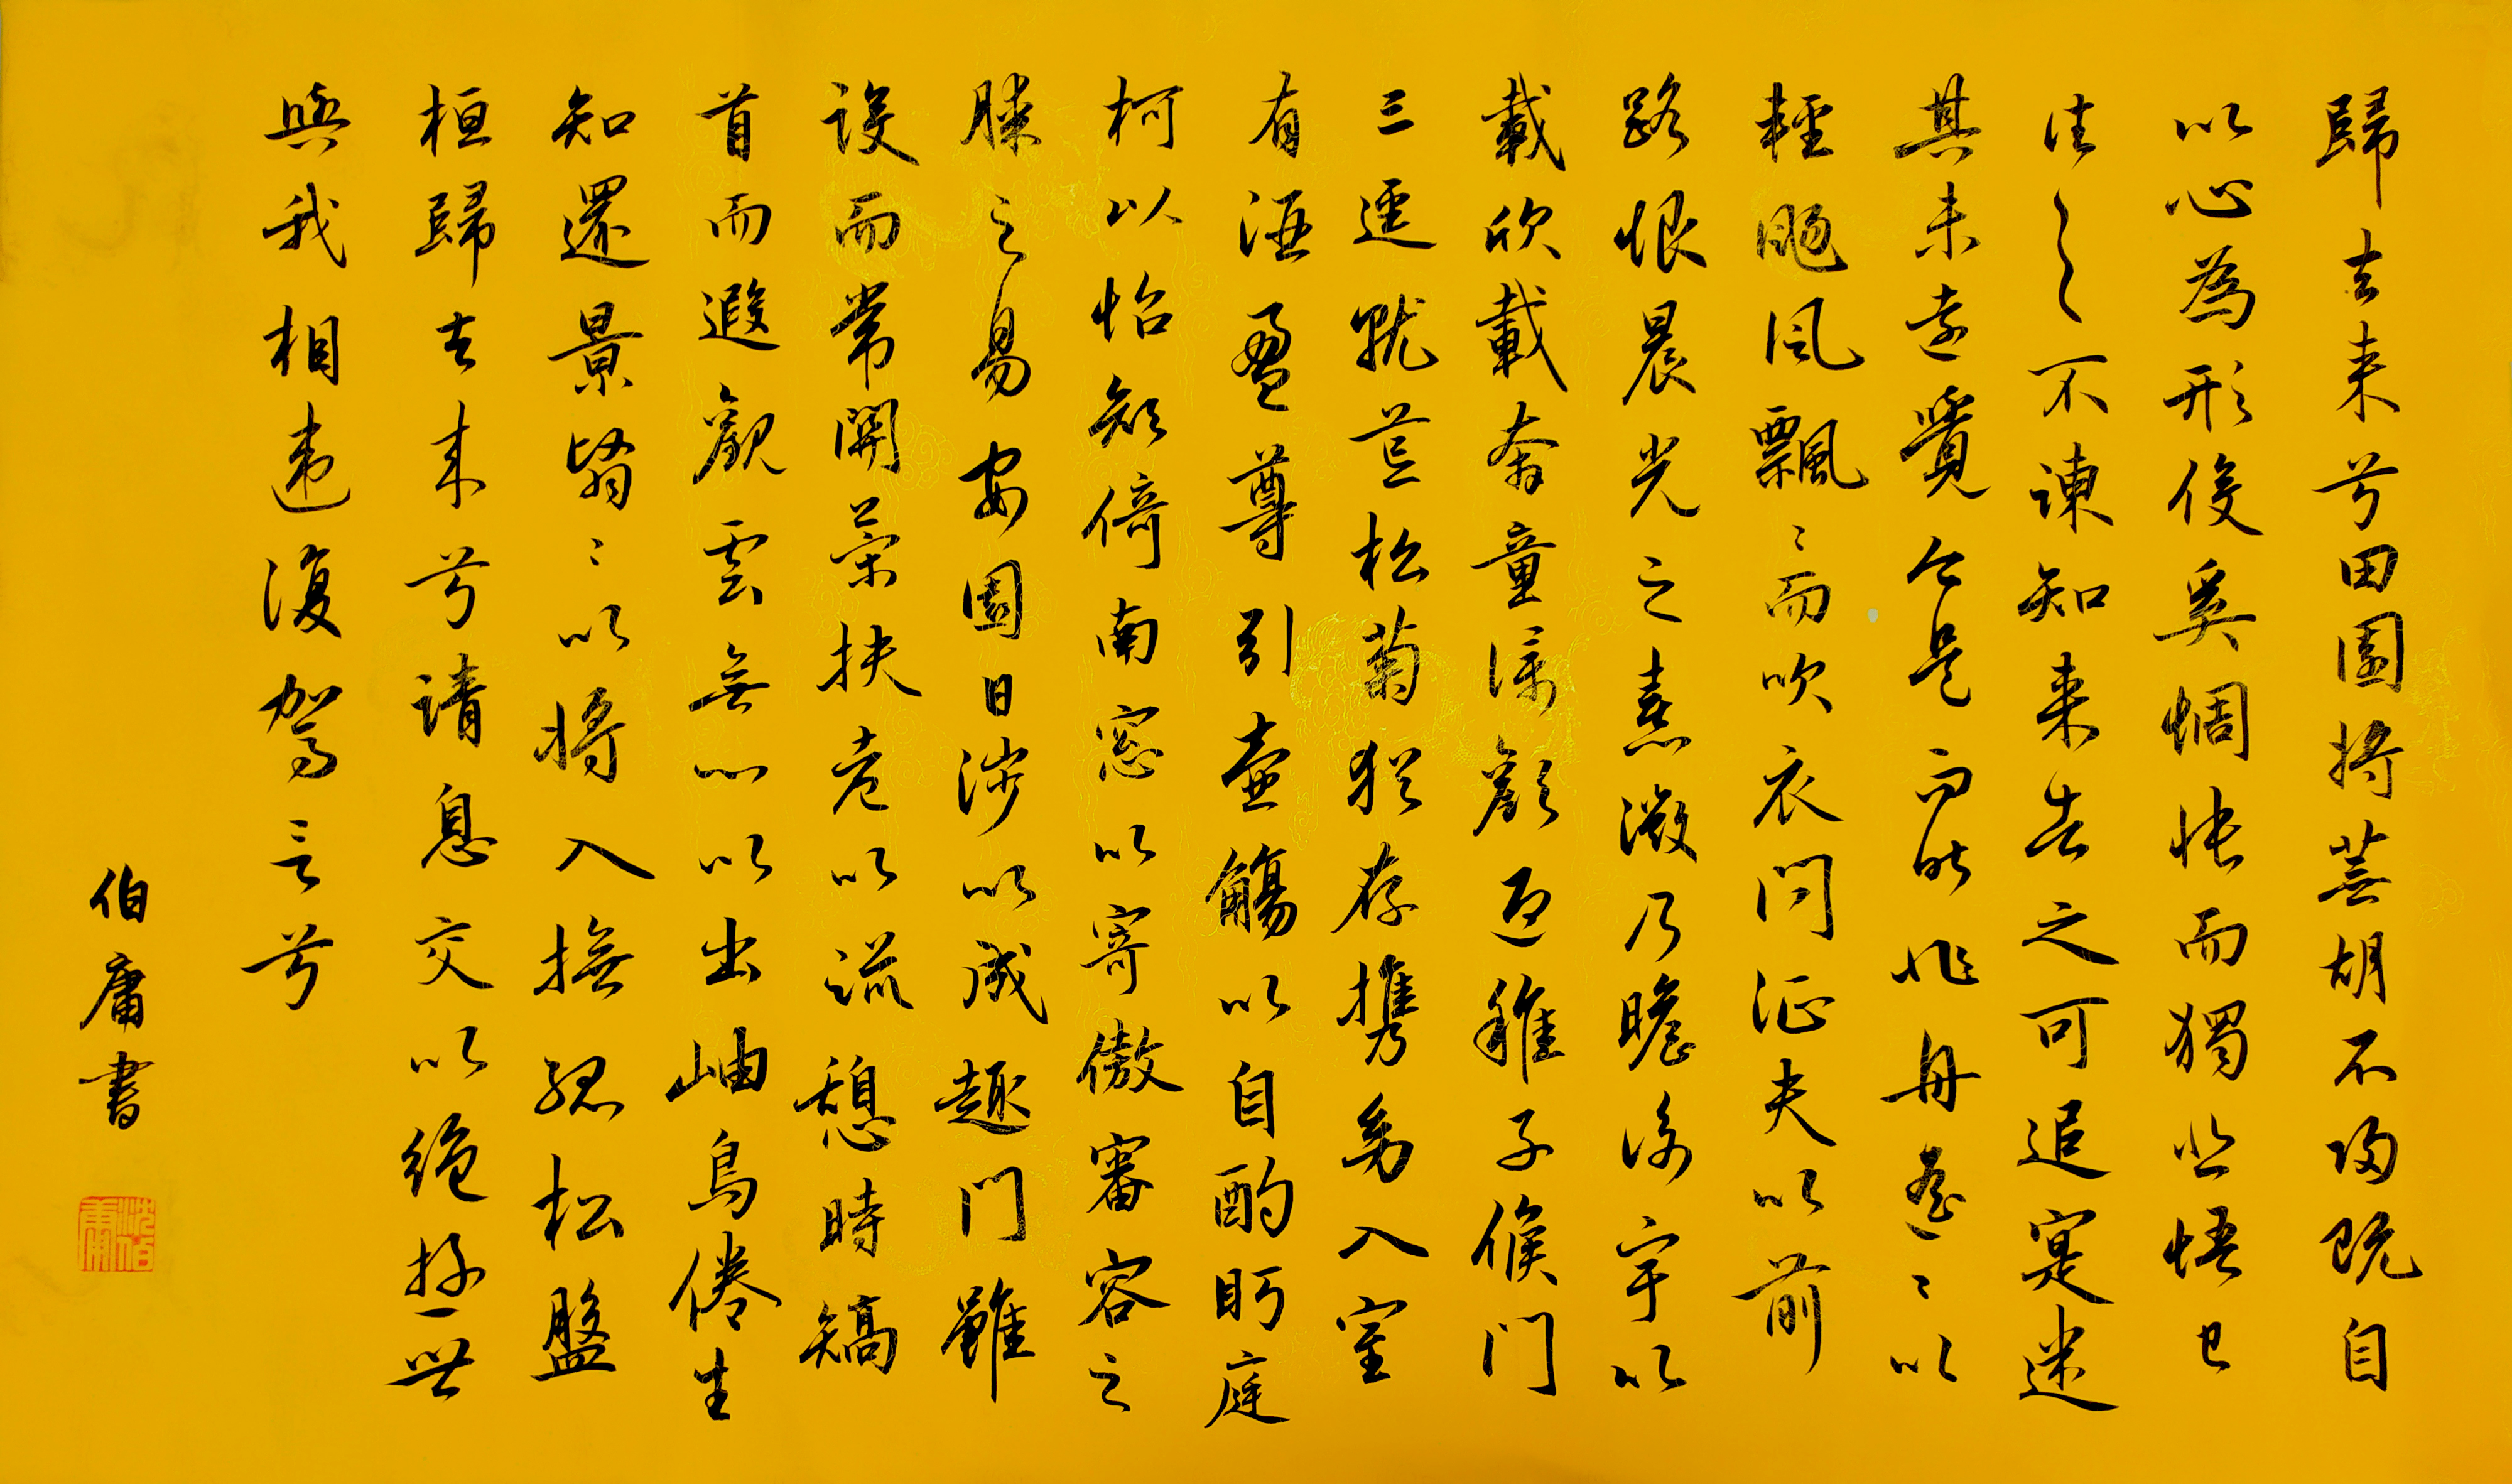 歸去来兮田園將蕪胡不歸既自
以心為形役奚惆悵而獨悲悟已
往之不諫知来者之可追寔迷
其未遠覺今是而昨非舟遥〻以
輕颺風飄〻而吹衣問征夫以前
路恨晨光之熹微乃瞻衡宇以
載欣載奔童僕歡迎稚子候門
三逕就荒松菊猶存携幼入室
有酒盈尊引壺觴以自酌眄庭
柯以怡顏倚南窓以寄傲審容之
膝之易安園日涉以成趣門雖
設而常關策扶老以流憩時矯
首而遐觀雲無心以出岫鳥倦生
知還景翳〻以將入撫孤松盤
桓歸去来兮請息交以絶遊世
與我相違復駕言兮
伯庸書